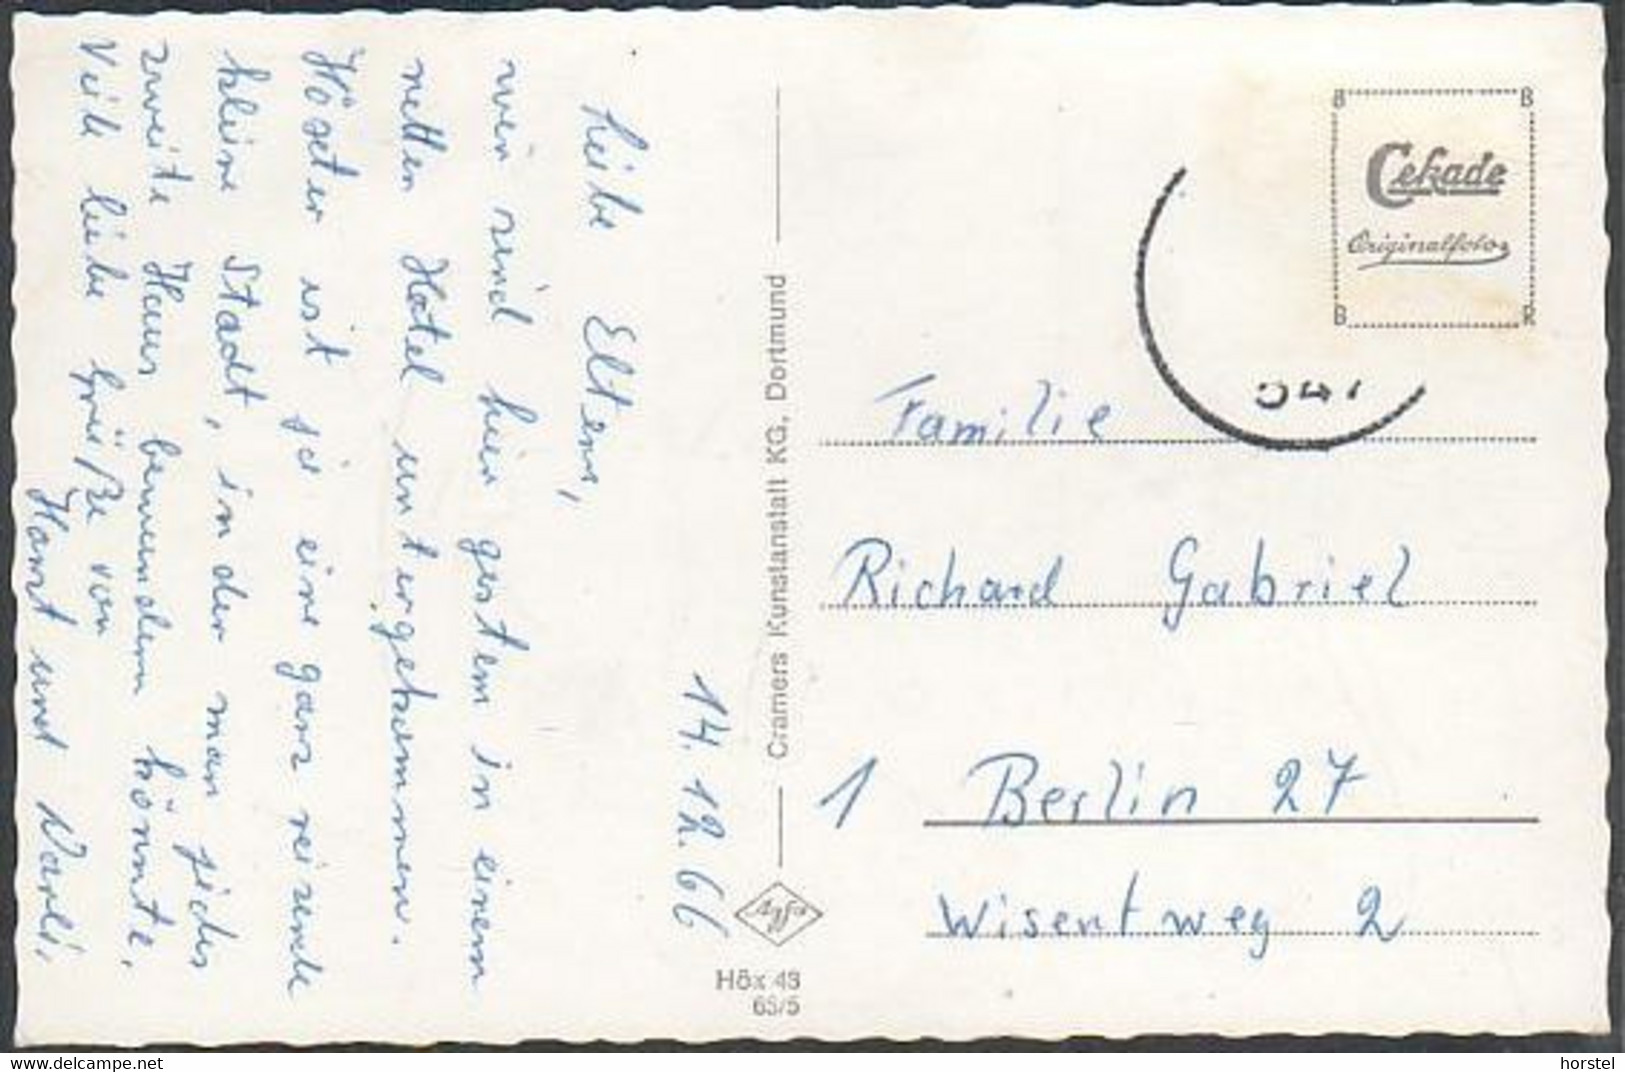 14.12.66
Liebe Eltern,
wir sind hier gestern in einem
netten Hotel untergekommen.
Höxter ist ja eine ganz reizende
kleine Stadt, in der man jedes
zweite Haus bewundern könnte.
Viele liebe Grüße von
Horst und Karli.
Cramers Kunstanstalt KG, Dortmund
Agfa
Höx 43
65/5
B B
Cekade
Originalfoto
B R
Familie
Richard Gabriel
1 Berlin 27
Wisentweg 2
horstel